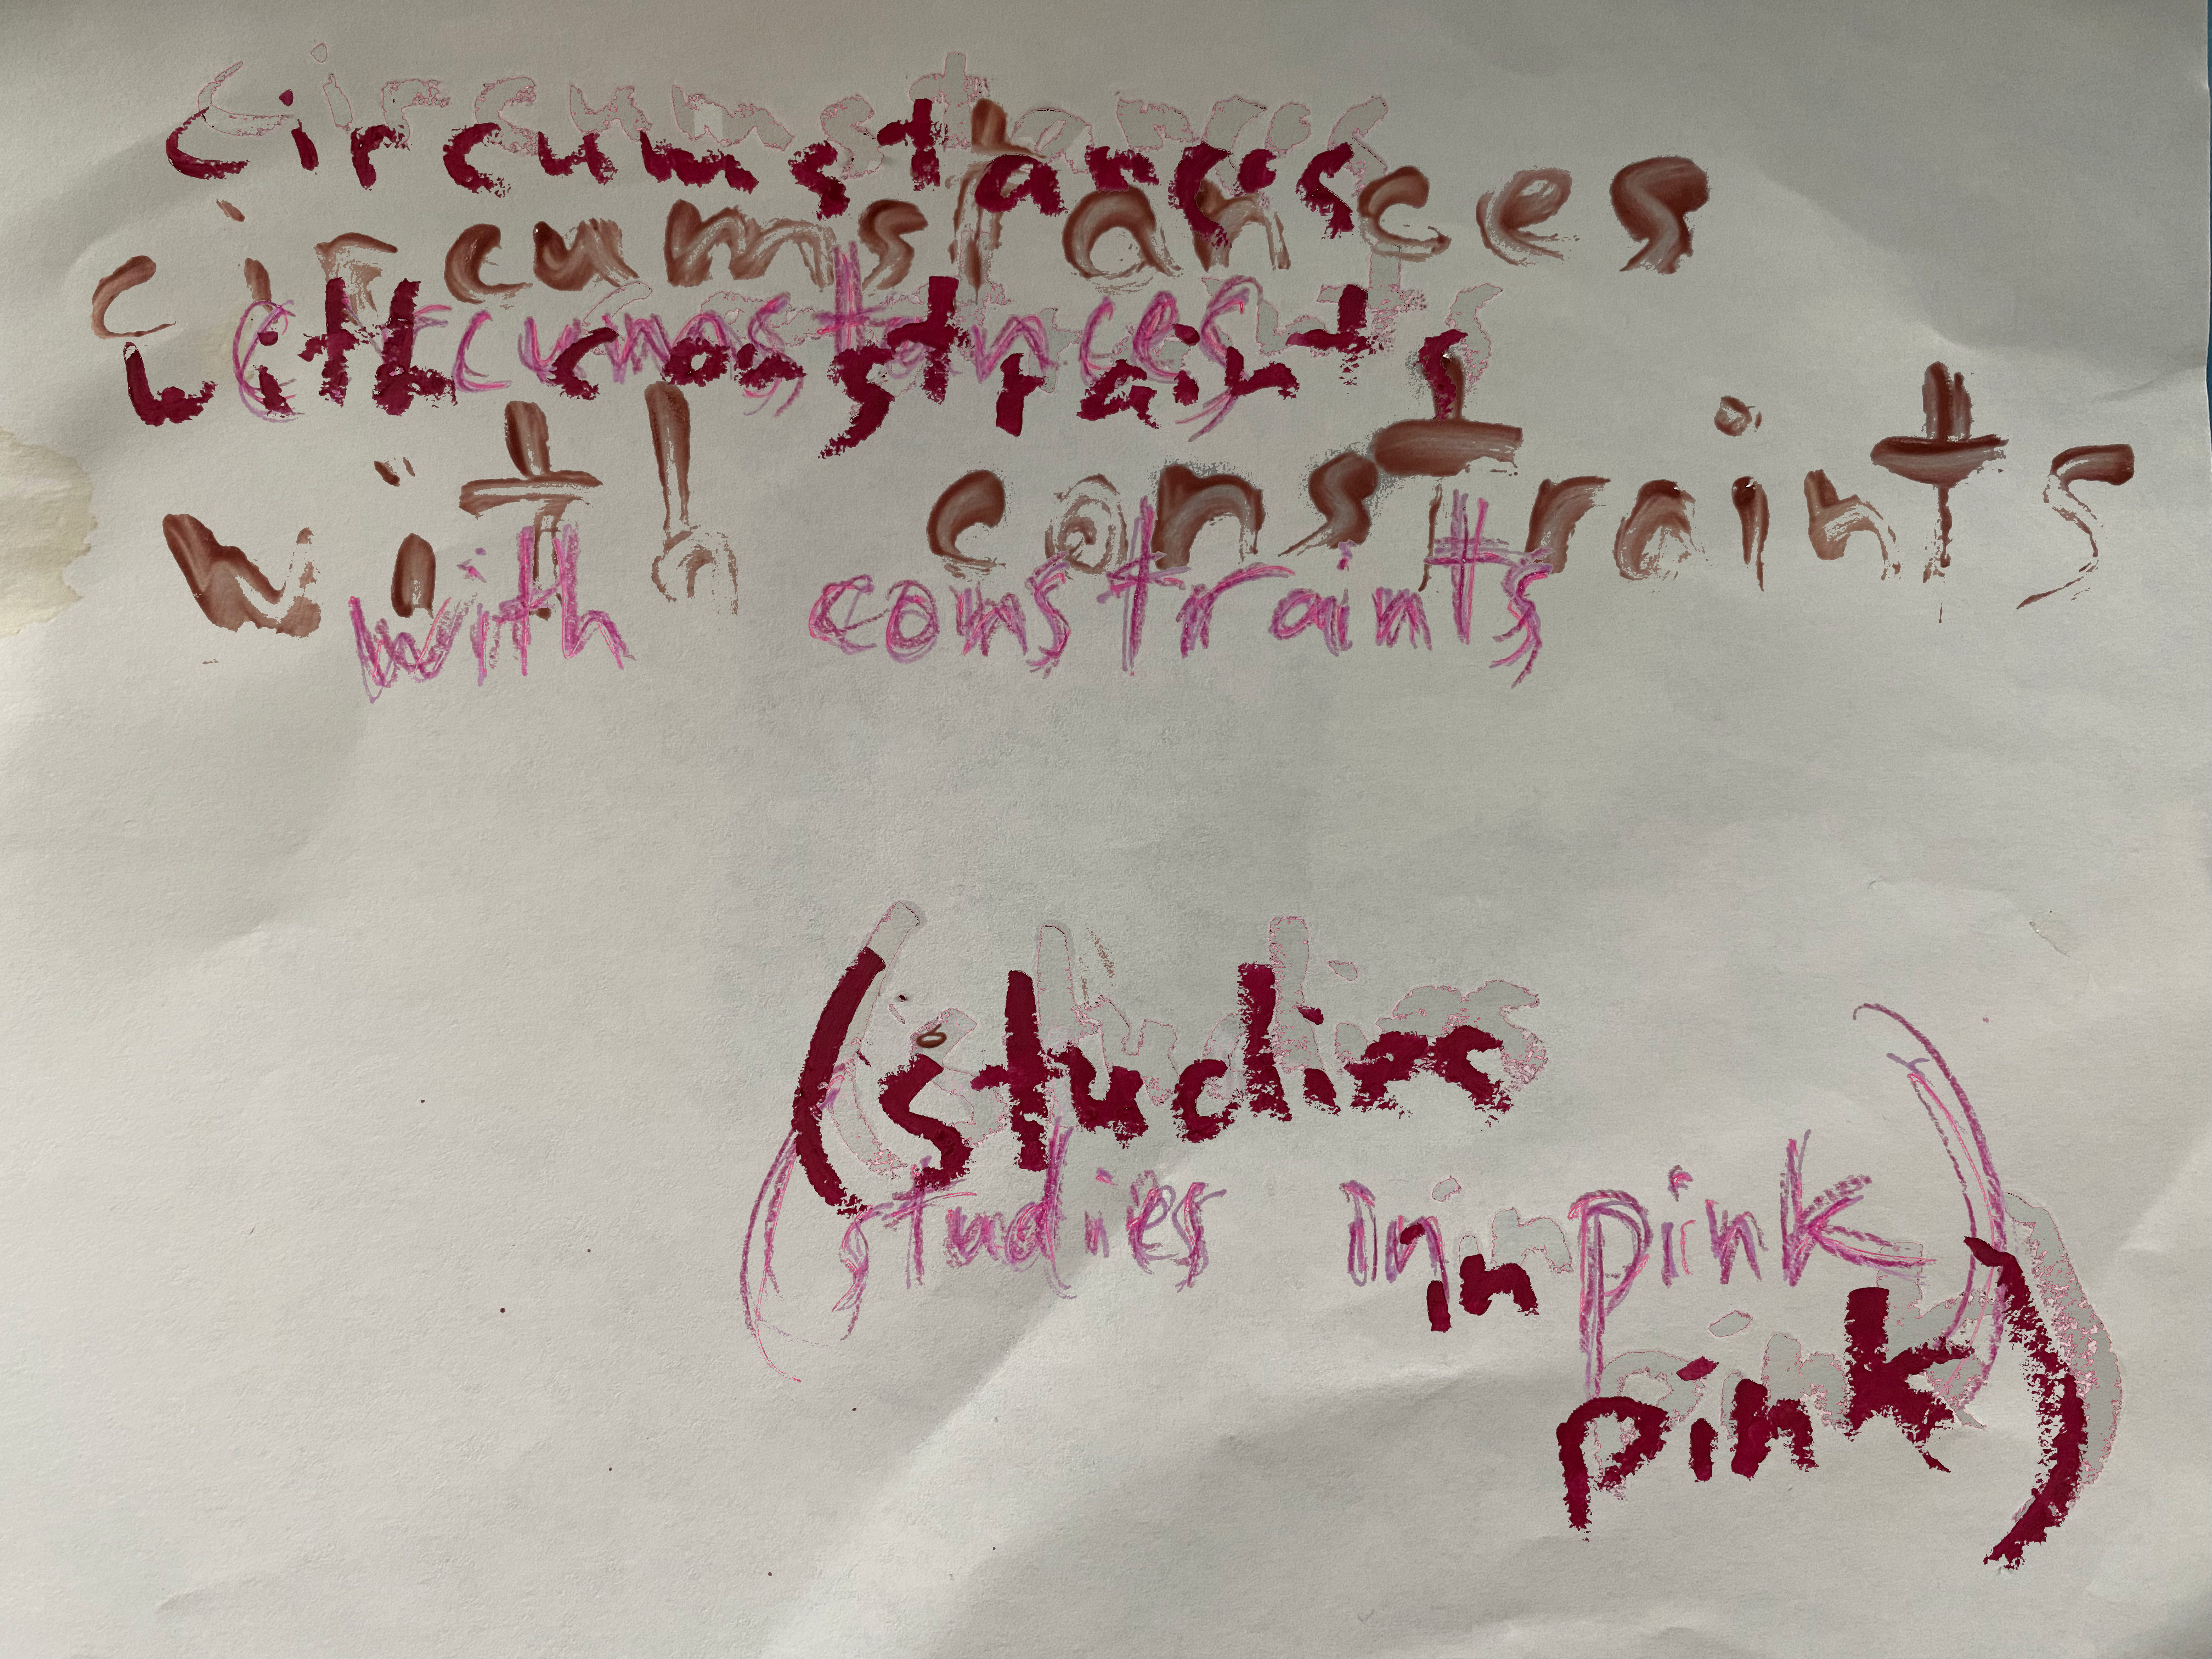 circumstances
circumstances
circumstances
with constraints
with constraints
with constraints
(studies
(studies in pink)
in
pink)